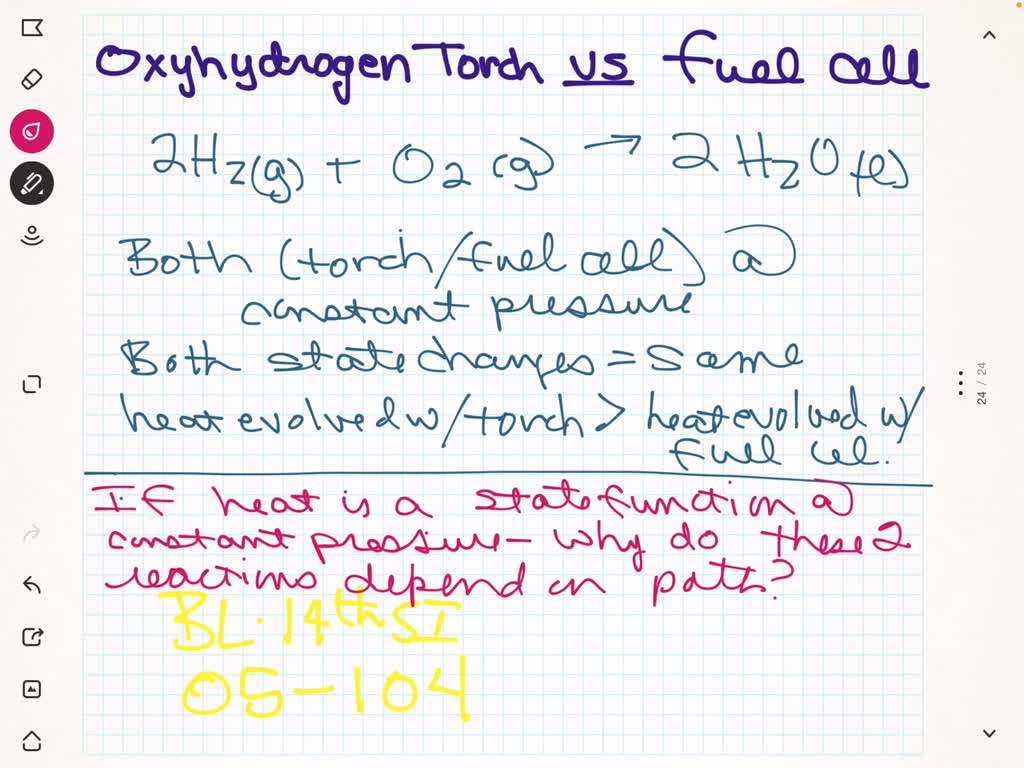 Oxyhydrogen Torch vs fuel cell
2H2(g) + O2 (g) → 2 H2O (l)
Both (torch/fuel cell) @
constant pressure
Both state changes = same
heat evolved w/torch > heat evolved w/
fuel cel.
If heat is a state function @
constant pressure - why do these 2
reactions depend on path?
BL. 14th SI
05-104
24 / 24